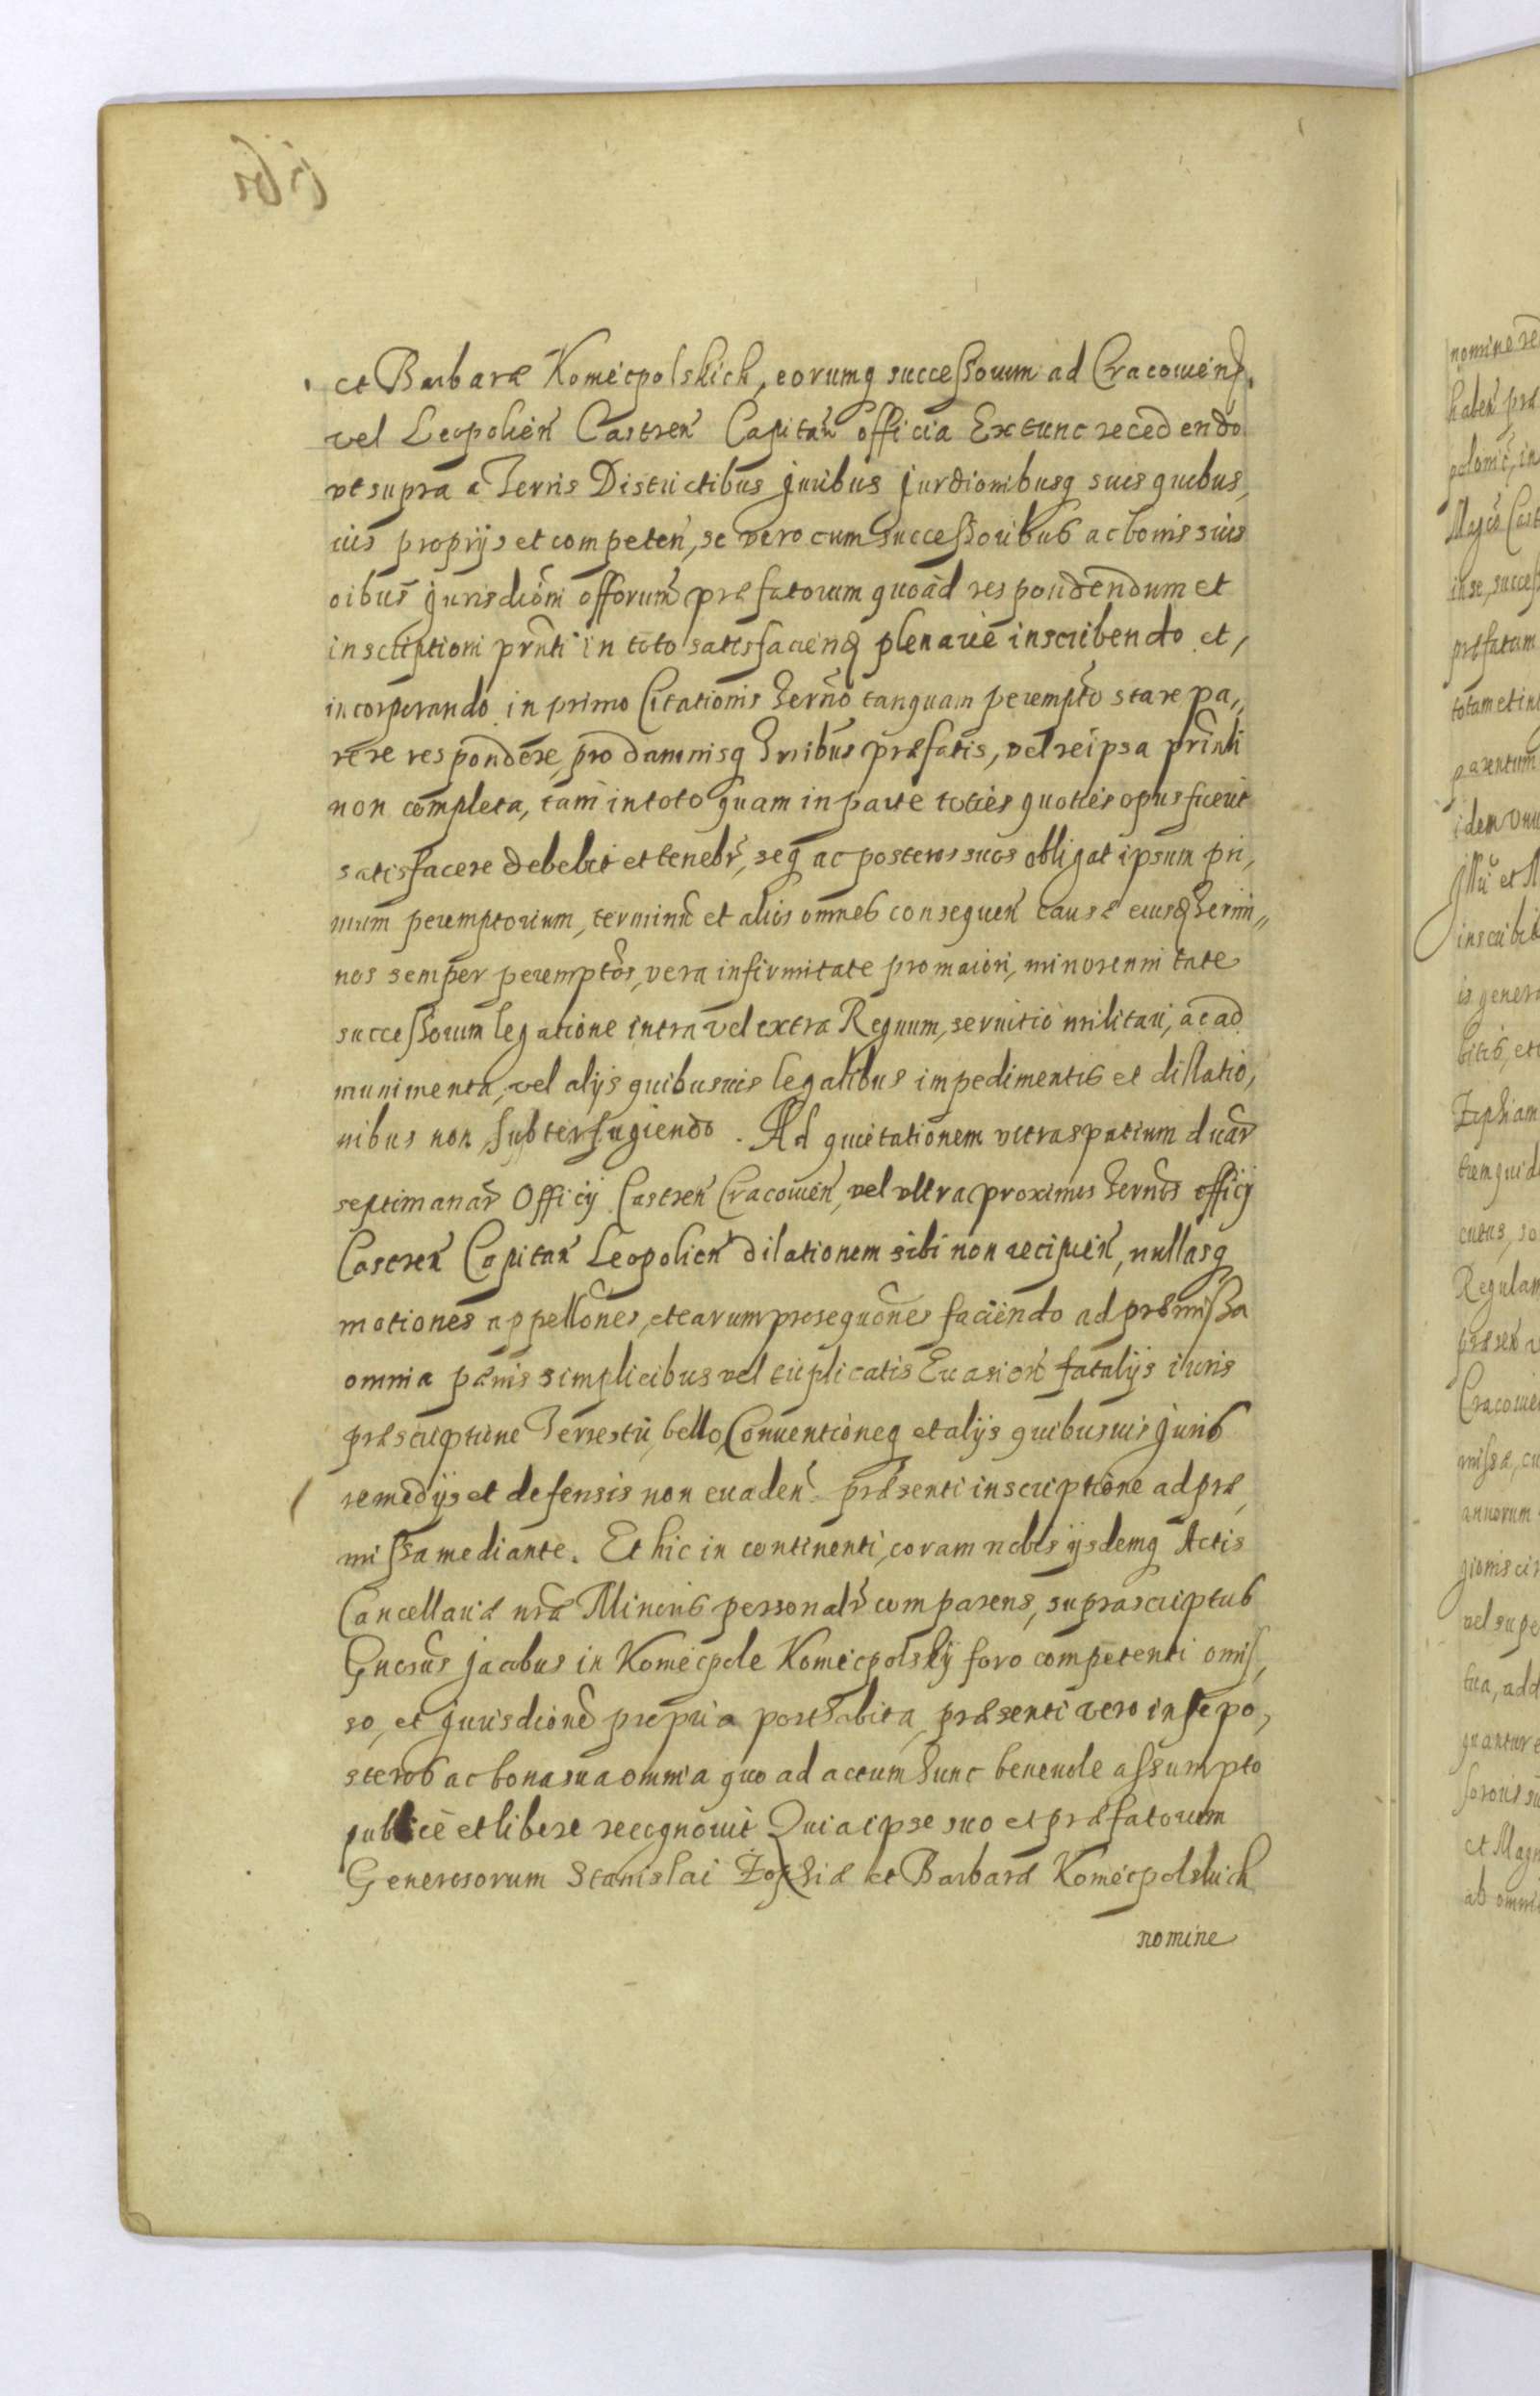 et Barbaræ Koniecpolskich, eorumq successorum ad Cracouiens.
vel Leopolien Castren Capitan officia Extunc recedendo
vt supra a Terris Districtibus juribus jurdionibusq suis quibus,
uis proprijs et competen, se vero cum successoribus ac bonis suis
oibus jurisdiom offorum præfatorum quoad respondendum et
inscriptioni prnti in toto satisfaciend plenarie inscribendo et,
incorporando in primo Citationis Termo tanquam perempto stare pa,,
rere respondere, pro damnisq Trribus præfatis, vel re ipsa prinli
non completa, tam in toto quam in parte toties quoties opus fuerit
satisfacere debebit et tenebr, seq ac posteros suos obligat ipsum pri,
mum peremptorium, terminu et alios omnes consequen causæ eiusq Termi,,
nos semper peremptos, vera infirmitate pro maiori, minorennitate
successorum legatione intra vel extra Regnum, seruitio militari, ac ad
munimenta, vel alijs quibusuis legalibus impedimentis et dillatio,
nibus non subterfugiendo. Ad quietationem vltra spatium duar
septimanar Officij Castren Cracouien, vel vltra proximos Termos officij
Castren Capitan Leopolien dilationem sibi non recipien, nullasq
motiones appellones, et earum prosequones faciendo ad præmissa
omnia pænis simplicibus vel triplicatis Euasion fatalijs iuris
præscriptione Terrestri, bello, Conuentioneq et alijs quibusuis juris
remedijs et defensis non euaden præsenti inscriptione ad præ,
missa mediante. Et hic in continenti, coram nobis ijsdemq Actis
Cancellariæ nræ Minoris personalr comparens, suprascriptus
Gnosus Jacobus in Koniecpole Koniecpolsky foro competenti omis,
so, et jurisdione propria posthabita, præsenti vero in se po,
steros ac bona sua omnia quo ad actum hunc beneuole assumpto
publice et libere recognouit Quia ipse suo et præfatorum
Generosorum Stanislai Zophiæ et Barbaræ Koniecpolskich
nomine